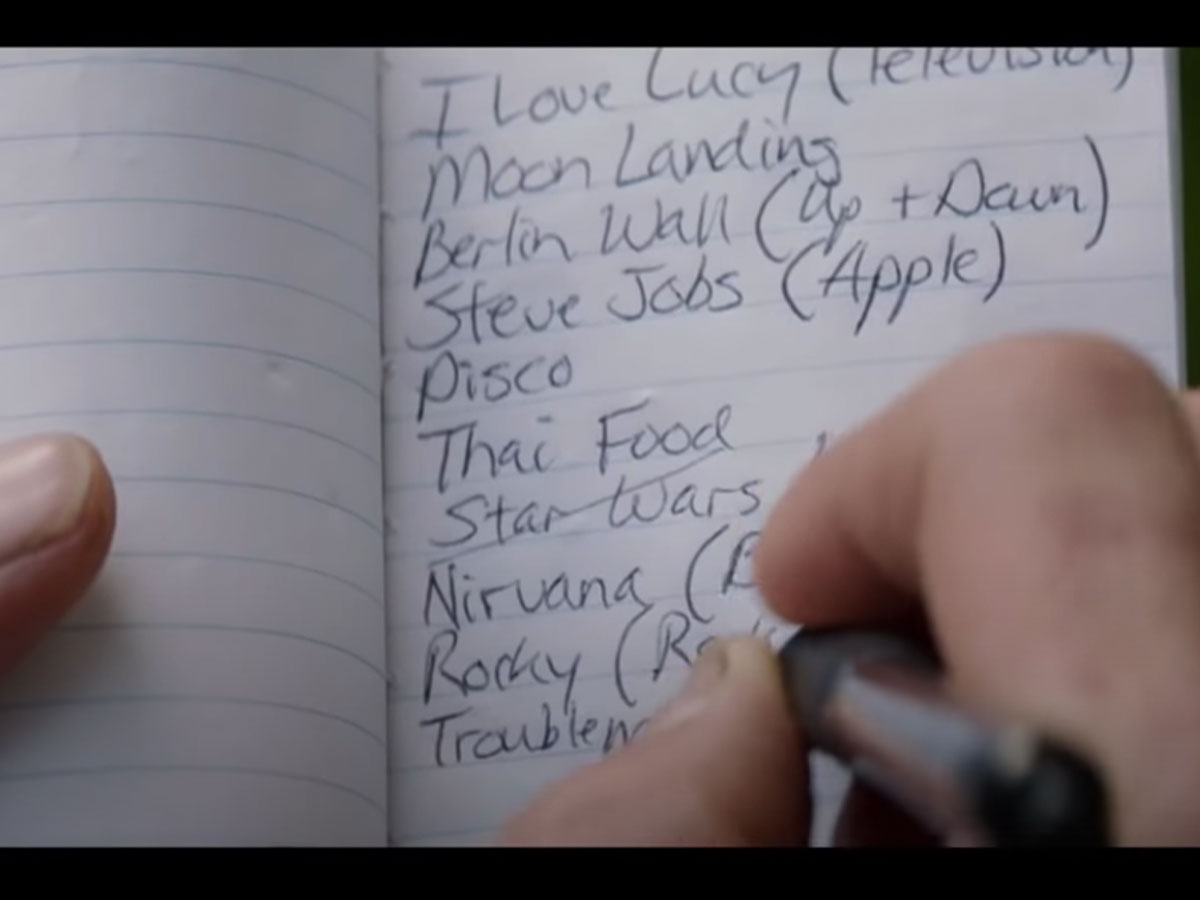 I Love Lucy (Television)
Moon Landing
Berlin Wall (Up + Down)
Steve Jobs (Apple)
Disco
Thai Food
Star Wars
Nirvana
Rocky